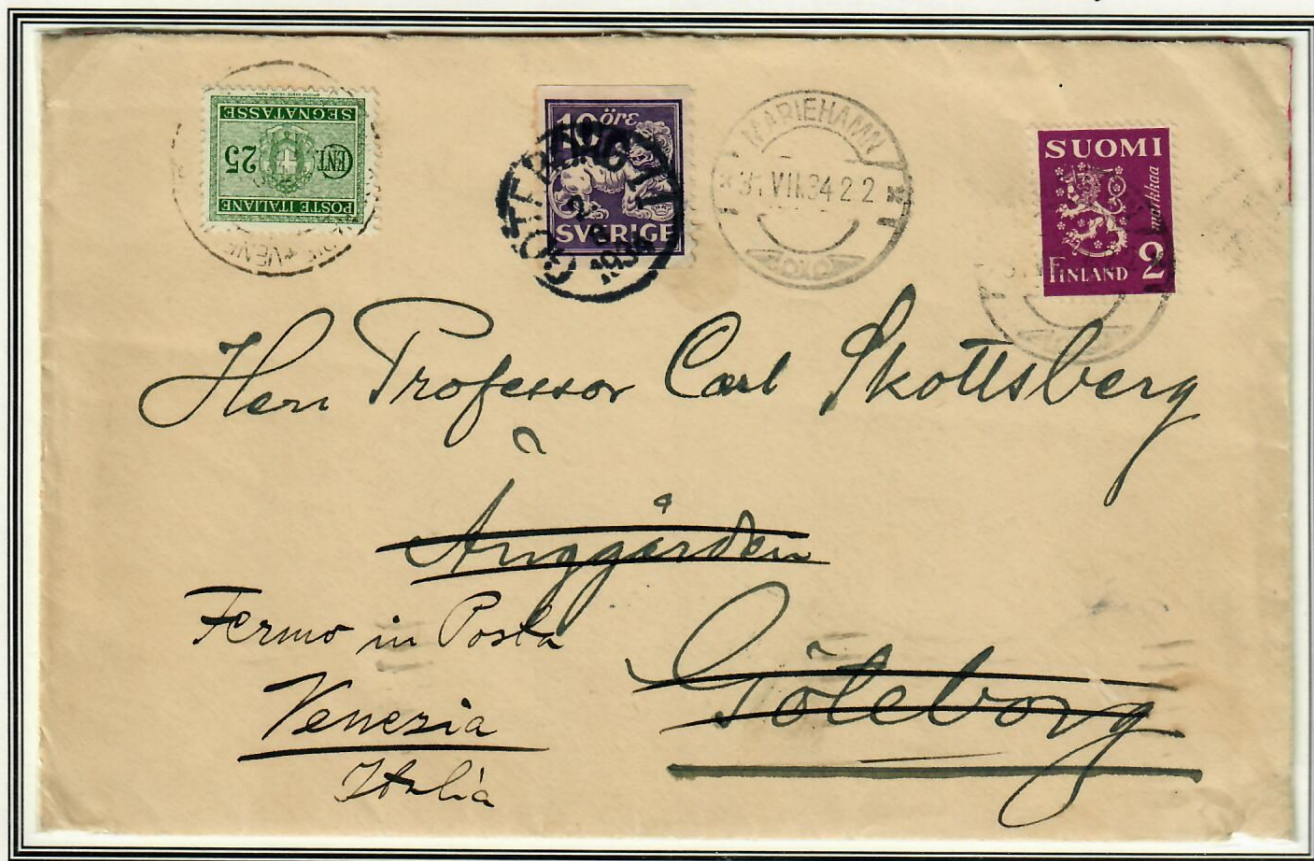 POSTE ITALIANE
CENT. 25
SEGNATASSE
10 öre
SVERIGE
1934
MARIEHAMN
31.VII.34 22
SUOMI
2 markkaa
FINLAND
Herr Professor Carl Skottsberg
Änggården
Göteborg
Fermo in Posta
Venezia
Italia